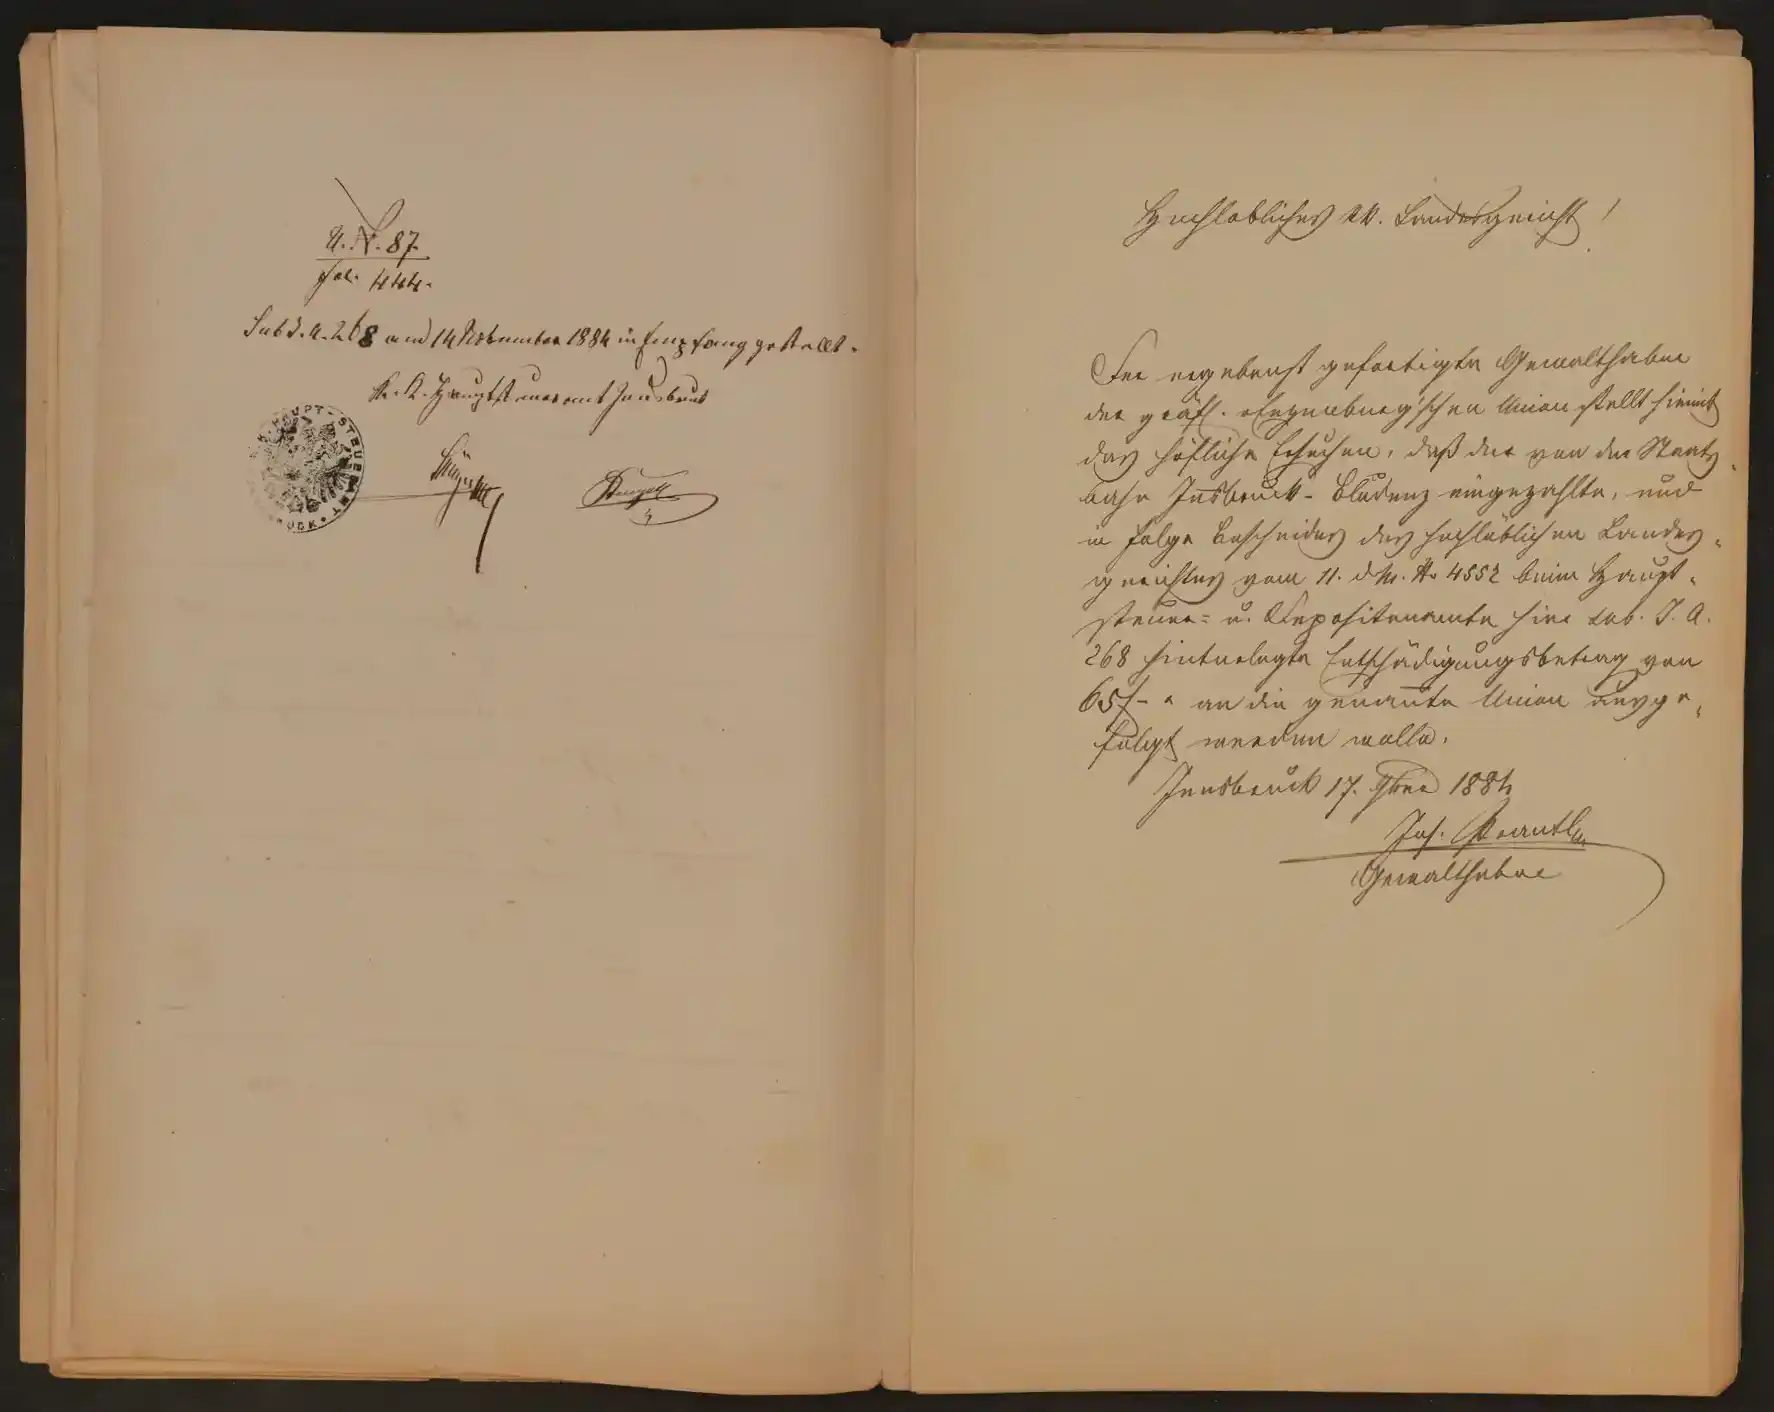 A. N. 87.
fol. 444.
Sub J. A. 268 am 14 November 1884 in Empfang gestellt.
K. K. Hauptsteueramt Innsbruck
K. K. HAUPT-STEUERAMT
Hochlöbliches kk. Landesgericht!
Der ergebenst gefertigte Gewalthaber
der gräfl. Enzenberg'schen Union stellt hiemit
das höfliche Ersuchen, daß der von der Staats-
bahn Innsbruck-Bludenz eingezahlte, und
in Folge Bescheides des hochlöblichen Landes-
gerichtes vom 11. d. M. N. 4552 beim Haupt-
steuer- u. Depositenamte hier sub. J. A.
268 hinterlegte Entschädigungsbetrag von
65 f - an die genannte Union ausge-
folgt werden wolle.
Innsbruck 17. 9ber 1884
Jos. Prantl
Gewalthaber